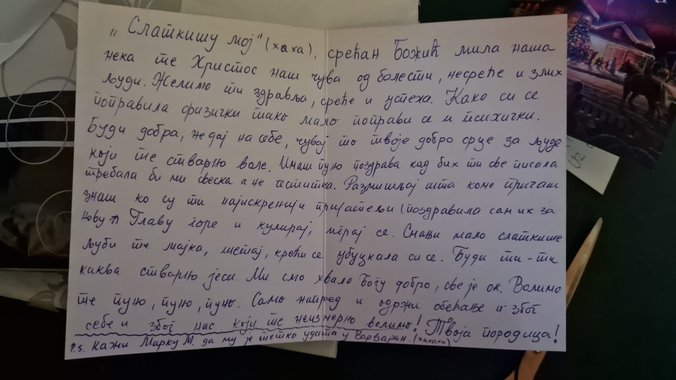 „Слаткишу мој“ (хаха), срећан Божић мила наша
нека те Христос наш чува од болести, несреће и злих
људи. Желимо ти здравља, среће и успеха. Како си се
поправила физички тако мало поправи се и психички.
Буди добра, не дај на себе, чувај то твоје добро срце за људе
који те стварно воле. Имаш пуно поздрава кад бих ти све писала
требала би ми свеска а не честитка. Размишљај шта коме причаш
знаш ко су ти најискренији пријатељи (поздравила сам их за
Нову г. Главу горе и кулирај, играј се. Смањи мало слаткише
љуби те мајка, шетај, крећи се убуцкала си се. Буди ти-ти
каква стварно јеси. Ми смо хвала Богу добро, све је ок. Волимо
те пуно, пуно, пуно. Само напред и одржи обећање и због
себе и због нас који те неизмерно волимо! Твоја породица!
P.S. Кажи Марку М. да му је тетка удата у Варварин. (хахаха)